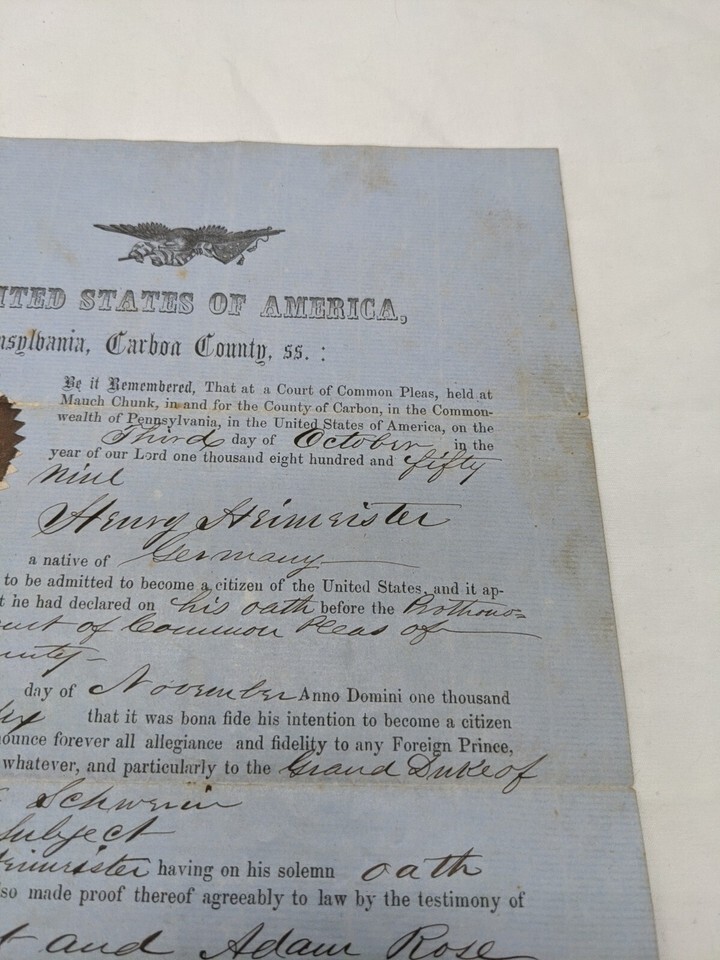 ITED STATES OF AMERICA,
nsylvania, Carbon County, ss. :
Be it Remembered, That at a Court of Common Pleas, held at
Mauch Chunk, in and for the County of Carbon, in the Common-
wealth of Pennsylvania, in the United States of America, on the
Third day of October in the
year of our Lord one thousand eight hundred and fifty
nine
Henry Heimeister
a native of Germany
to be admitted to become a citizen of the United States, and it ap-
t he had declared on his oath before the Prothono=
ourt of Common Pleas of
unty
day of November Anno Domini one thousand
that it was bona fide his intention to become a citizen
ounce forever all allegiance and fidelity to any Foreign Prince,
whatever, and particularly to the Grand Duke of
Schwerin
Subject
eimeister having on his solemn oath
lso made proof thereof agreeably to law by the testimony of
t and Adam Rose